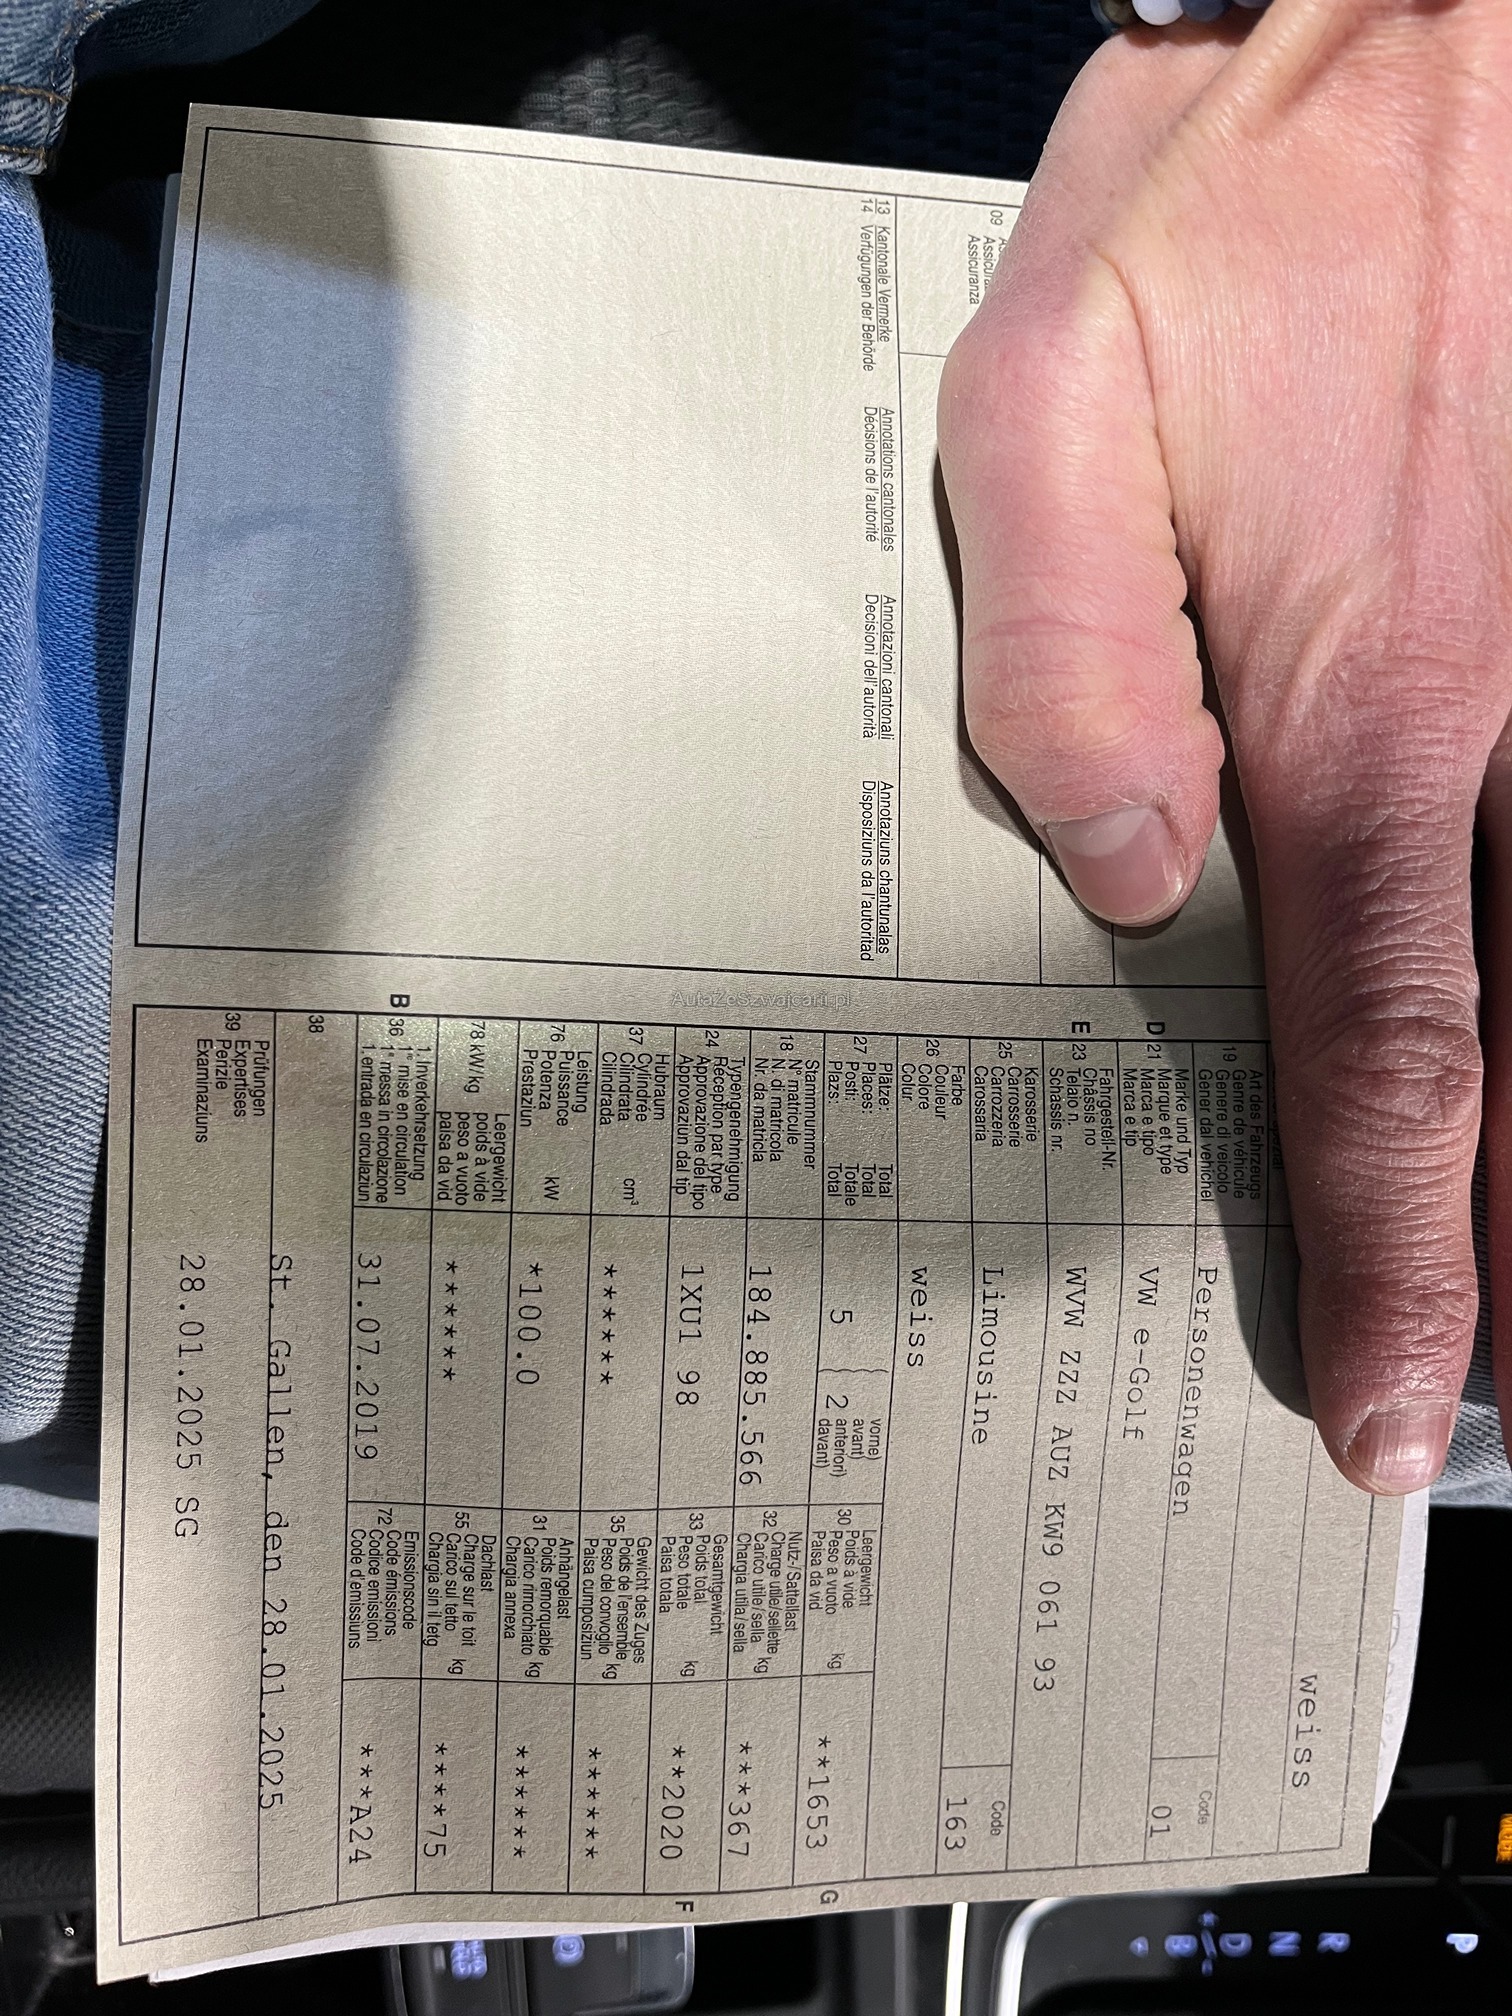 09
Assicuranza
13 Kantonale Vermerke Annotations cantonales Annotazioni cantonali Annotaziuns chantunalas
14 Verfügungen der Behörde Décisions de l'autorité Decisioni dell'autorità Disposiziuns da l'autoritad
weiss
Art des Fahrzeugs
19 Genre de véhicule
Genere di veicolo
Gener dal vehichel
Personenwagen
Code
01
Marke und Typ
D 21 Marque et type
Marca e tipo
Marca e tip
VW e-Golf
Fahrgestell-Nr.
E 23 Châssis no
Telaio n.
Schassis nr.
WVW ZZZ AUZ KW9 061 93
Karosserie
25 Carrosserie
Carrozzeria
Carossaria
Limousine
Code
163
Farbe
26 Couleur
Colore
Colur
weiss
Plätze: Total
27 Places: Total
Posti: Totale
Plazs: Total
5
2
vorne)
avant)
anteriori)
davant)
Leergewicht
30 Poids à vide
Peso a vuoto kg
Paisa da vid
**1653
G
Stammnummer
18 N° matricule
N. di matricola
Nr. da matricla
184.885.566
Nutz-/Sattellast
32 Charge utile/sellette
Carico utile/sella kg
Chargia utila/sella
***367
Typengenehmigung
24 Réception par type
Approvazione del tipo
Approvaziun dal tip
1XU1 98
Gesamtgewicht
33 Poids total
Peso totale kg
Paisa totala
**2020
F
Hubraum
37 Cylindrée
Cilindrata cm³
Cilindrada
******
Gewicht des Zuges
35 Poids de l'ensemble
Peso del convoglio kg
Paisa cumposiziun
******
Leistung
76 Puissance
Potenza kW
Prestaziun
*100.0
Anhängelast
31 Poids remorquable
Carico rimorchiato kg
Chargia annexa
******
Leergewicht
78 kW/kg poids à vide
peso a vuoto
paisa da vid
******
Dachlast
55 Charge sur le toit
Carico sul tetto kg
Chargia sin il tetg
****75
1. Inverkehrsetzung
B 36 1re mise en circulation
1a messa in circolazione
1. entrada en circulaziun
31.07.2019
Emissionscode
72 Code émissions
Codice emissioni
Code d'emissiuns
***A24
38
St. Gallen, den 28.01.2025
Prüfungen
39 Expertises
Perizie
Examinaziuns
28.01.2025 SG
AutaZeSzwajcarii.pl
P
R
N
D
B